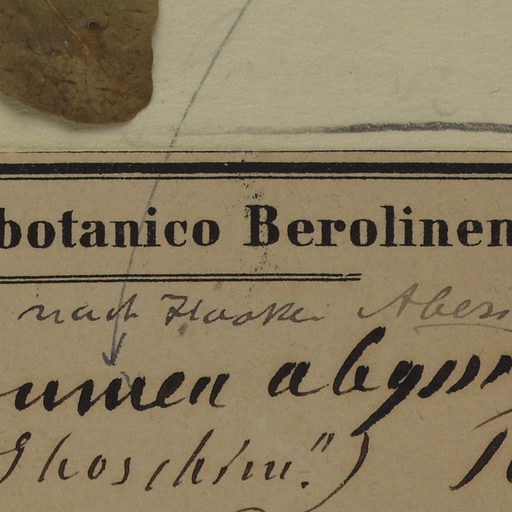 botanico Berolinen
nach Hooker Abess
umen abyss
Ghoschim.")